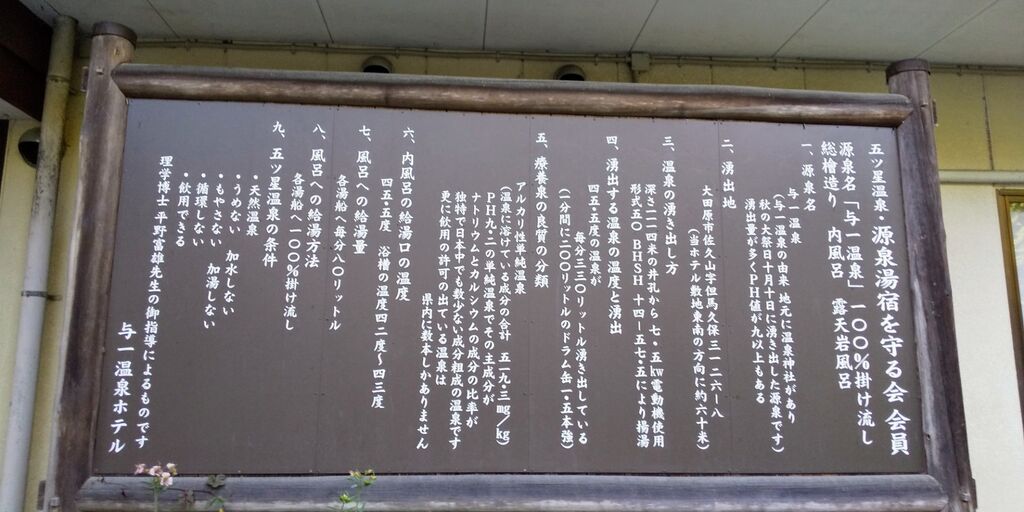 五ツ星温泉・源泉湯宿を守る会 会員
源泉名「与一温泉」一〇〇%掛け流し
総檜造り 内風呂 露天岩風呂
一、源泉名
与一温泉
(与一温泉の由来 地元に温泉神社があり
秋の大祭日十月十日に湧き出した源泉です)
湧出量が多くPH値が九以上もある
二、湧出地
大田原市佐久山字但馬久保三一二六-八
(当ホテル敷地東南の方向に約六十米)
三、温泉の湧き出し方
深さ二一四米の井孔から 七・五kw電動機使用
形式五〇 BHSH 十四-五・七五により揚湯
四、湧出する温泉の温度と湧出
四五・五度の温泉が
毎分三三〇リットル湧き出している
(一分間に二〇〇リットルのドラム缶一・五本強)
五、療養泉の良質の分類
アルカリ性単純温泉
(温泉に溶けている成分の合計 五一九・三mg/kg
PH九・二の単純温泉でその主成分が
ナトリウムとカルシウムの成分の比率が
独特で日本中でも数少ない成分組成の温泉です
更に飲用の許可の出ている温泉は
県内に数本しかありません
六、内風呂の給湯口の温度
四五・五度 浴槽の温度四二度~四三度
七、風呂への給湯量
各湯船へ毎分八〇リットル
八、風呂への給湯方法
各湯船へ一〇〇%掛け流し
九、五ツ星温泉の条件
・天然温泉
・うめない 加水しない
・もやさない 加湯しない
・循環しない
・飲用できる
理学博士 平野富雄先生の御指導によるものです
与一温泉ホテル